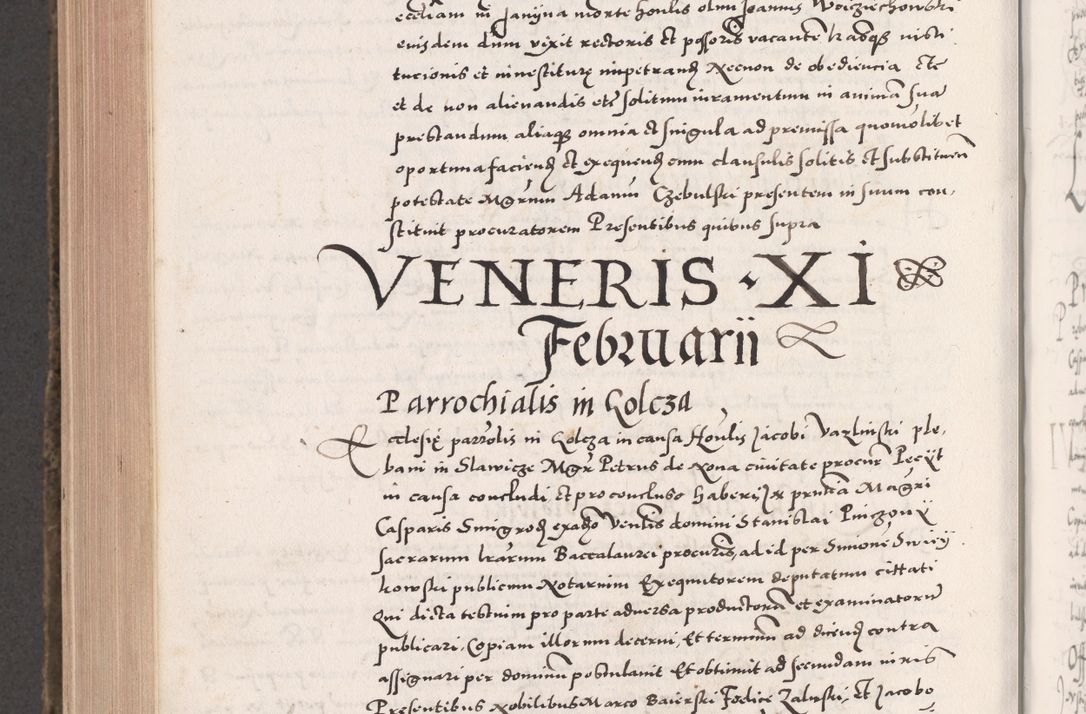 eccliam in Janyna morte honlis olim Joannis Woiciechowski
eiusdem dum vixit rectoris et possoris vacantem lraqꝫ insti
tucionis et investiture impetrand Necnon de obediencia etc
et de non alienandis etc solitum iuramentum in animam sua
prestandum aliaqꝫ omnia et singula ad premissa quomolibet
oportuna faciend et exequend cum clausulis solitis et substituen
potestate Mgrum Adamum Czebulski presentem in suum con
stituit procuratorem Presentibus quibus supra
VENERIS · XI
Februarii
Parrochialis in Golcza
Ecclesię parrolis in Golcza in causa Honlis Jacobi Vazlinski ple,
bani in Slawicze Mgr Petrus de Nova civitate procur Pecyt
in causa concludi et pro concluso haberi Ex pnția Magri
Casparis Smigrod exadso Venlis domini Stanislai Pinczowy
sacrarum lrarum Baccalaurei procuris, ad id per Simone Swiey
kowski publicum Notarium Exequutorem deputatum cittati
Qui dicta testium pro parte adversa productorum et examinatorum
publicari, Copiam illorum decerni, Et terminum ad dicend contra
assignari per dominum postulavit Et obtinuit ad secundam iuris
Presentibus Nobilibus Marco Baierski Felice Zaluski, Et Jacobo